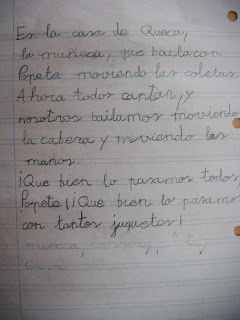 Es la casa de Queca,
la muñeca, que baila con
Pepete moviendo las coletas.
Ahora todos cantar, y
nosotros bailamos moviendo
la cabeza y moviendo las
manos.
¡Que bien lo pasamos todos,
Pepete! ¡Que bien lo pasamos
con tantos juguetes!
muñeca,